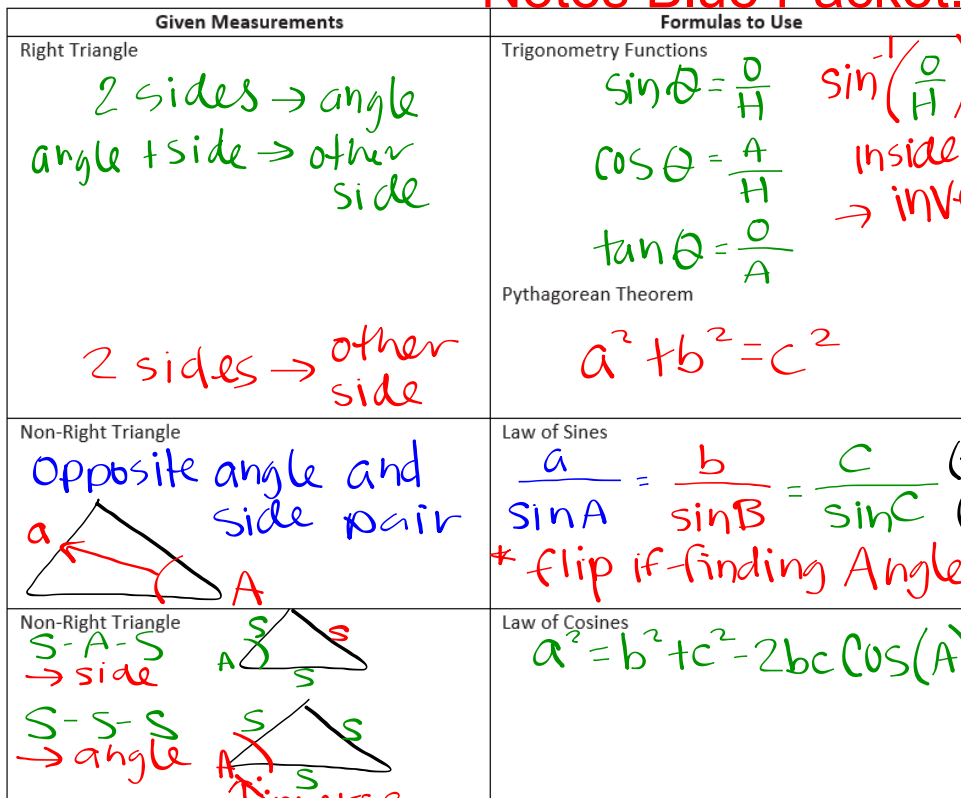 Notes Blue Packet
Given Measurements
Formulas to Use
Right Triangle
2 sides → angle
angle + side → other
side
2 sides → other
side
Trigonometry Functions
sin θ = O/H
sin⁻¹(O/H)
cos θ = A/H
Inside
→ inv
tan θ = O/A
Pythagorean Theorem
a² + b² = c²
Non-Right Triangle
Opposite angle and
side pair
a
A
Law of Sines
a/sinA = b/sinB = c/sinC
* flip if finding Angle
Non-Right Triangle
S-A-S
→ side
S
S
A
S
S-S-S
→ angle
S
S
A
S
Law of Cosines
a² = b² + c² - 2bc cos(A)